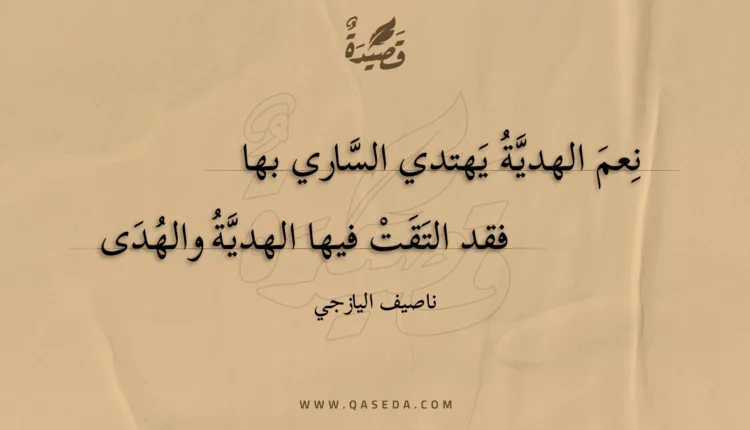 قَصِيْدَةٌ
نِعمَ الهديَّةُ يَهتدي السَّاري بها
فقد التَقَتْ فيها الهديَّةُ والهُدَى
ناصيف اليازجي
WWW.QASEDA.COM